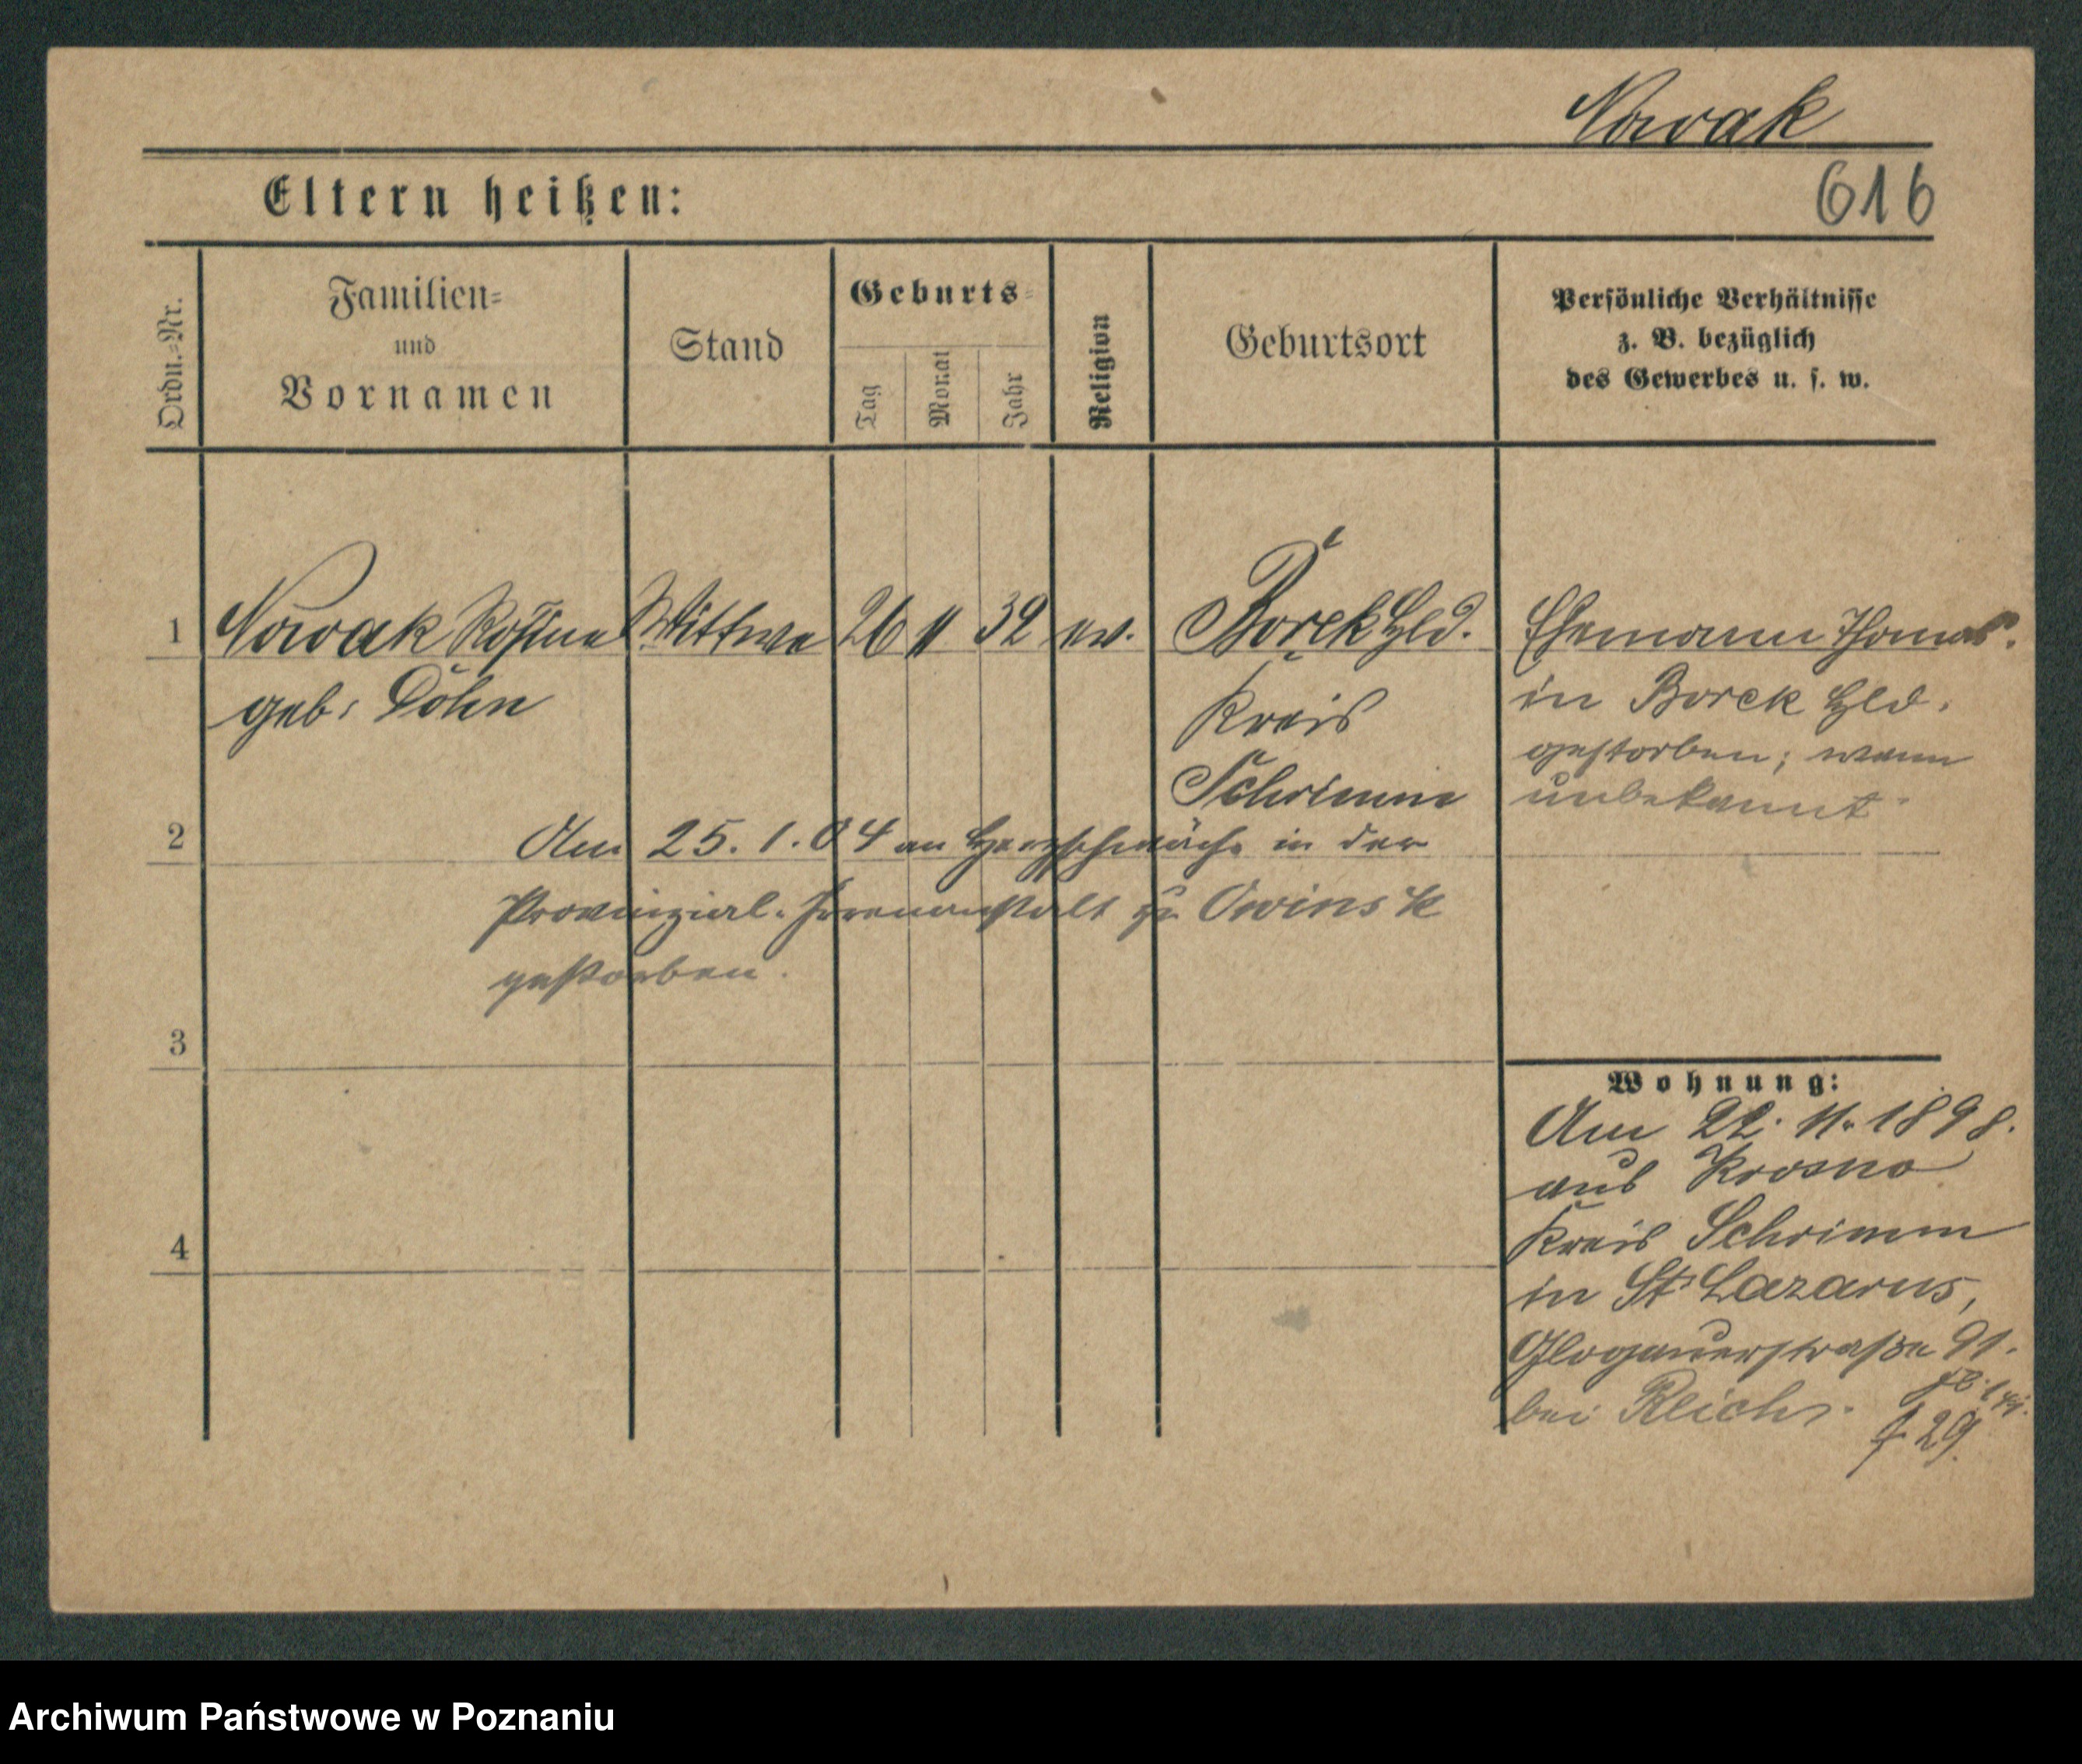 Nowak
616
Eltern heißen:
Ordn.-Nr.
Familien-
und
Vornamen
Stand
Geburts-
Tag
Monat
Jahr
Religion
Geburtsort
Persönliche Verhältnisse
z. B. bezüglich
des Gewerbes u. s. w.
1 Nowak Rosine Wittwe 26 11 32 ev. Borek Hld. Ehemann Thomas.
geb. Döhn Kreis in Borek Hld.
Schrimm gestorben; wann
unbekannt
2 Am 25. 1. 04 an Herzschwäche in der
Provinzial-Irrenanstalt zu Owinsk
gestorben.
3
4
Wohnung:
Am 22. 11. 1898.
aus Krosno
Kreis Schrimm
in St. Lazarus,
Glogauerstraße 91.
bei Reich.
29.
Archiwum Państwowe w Poznaniu